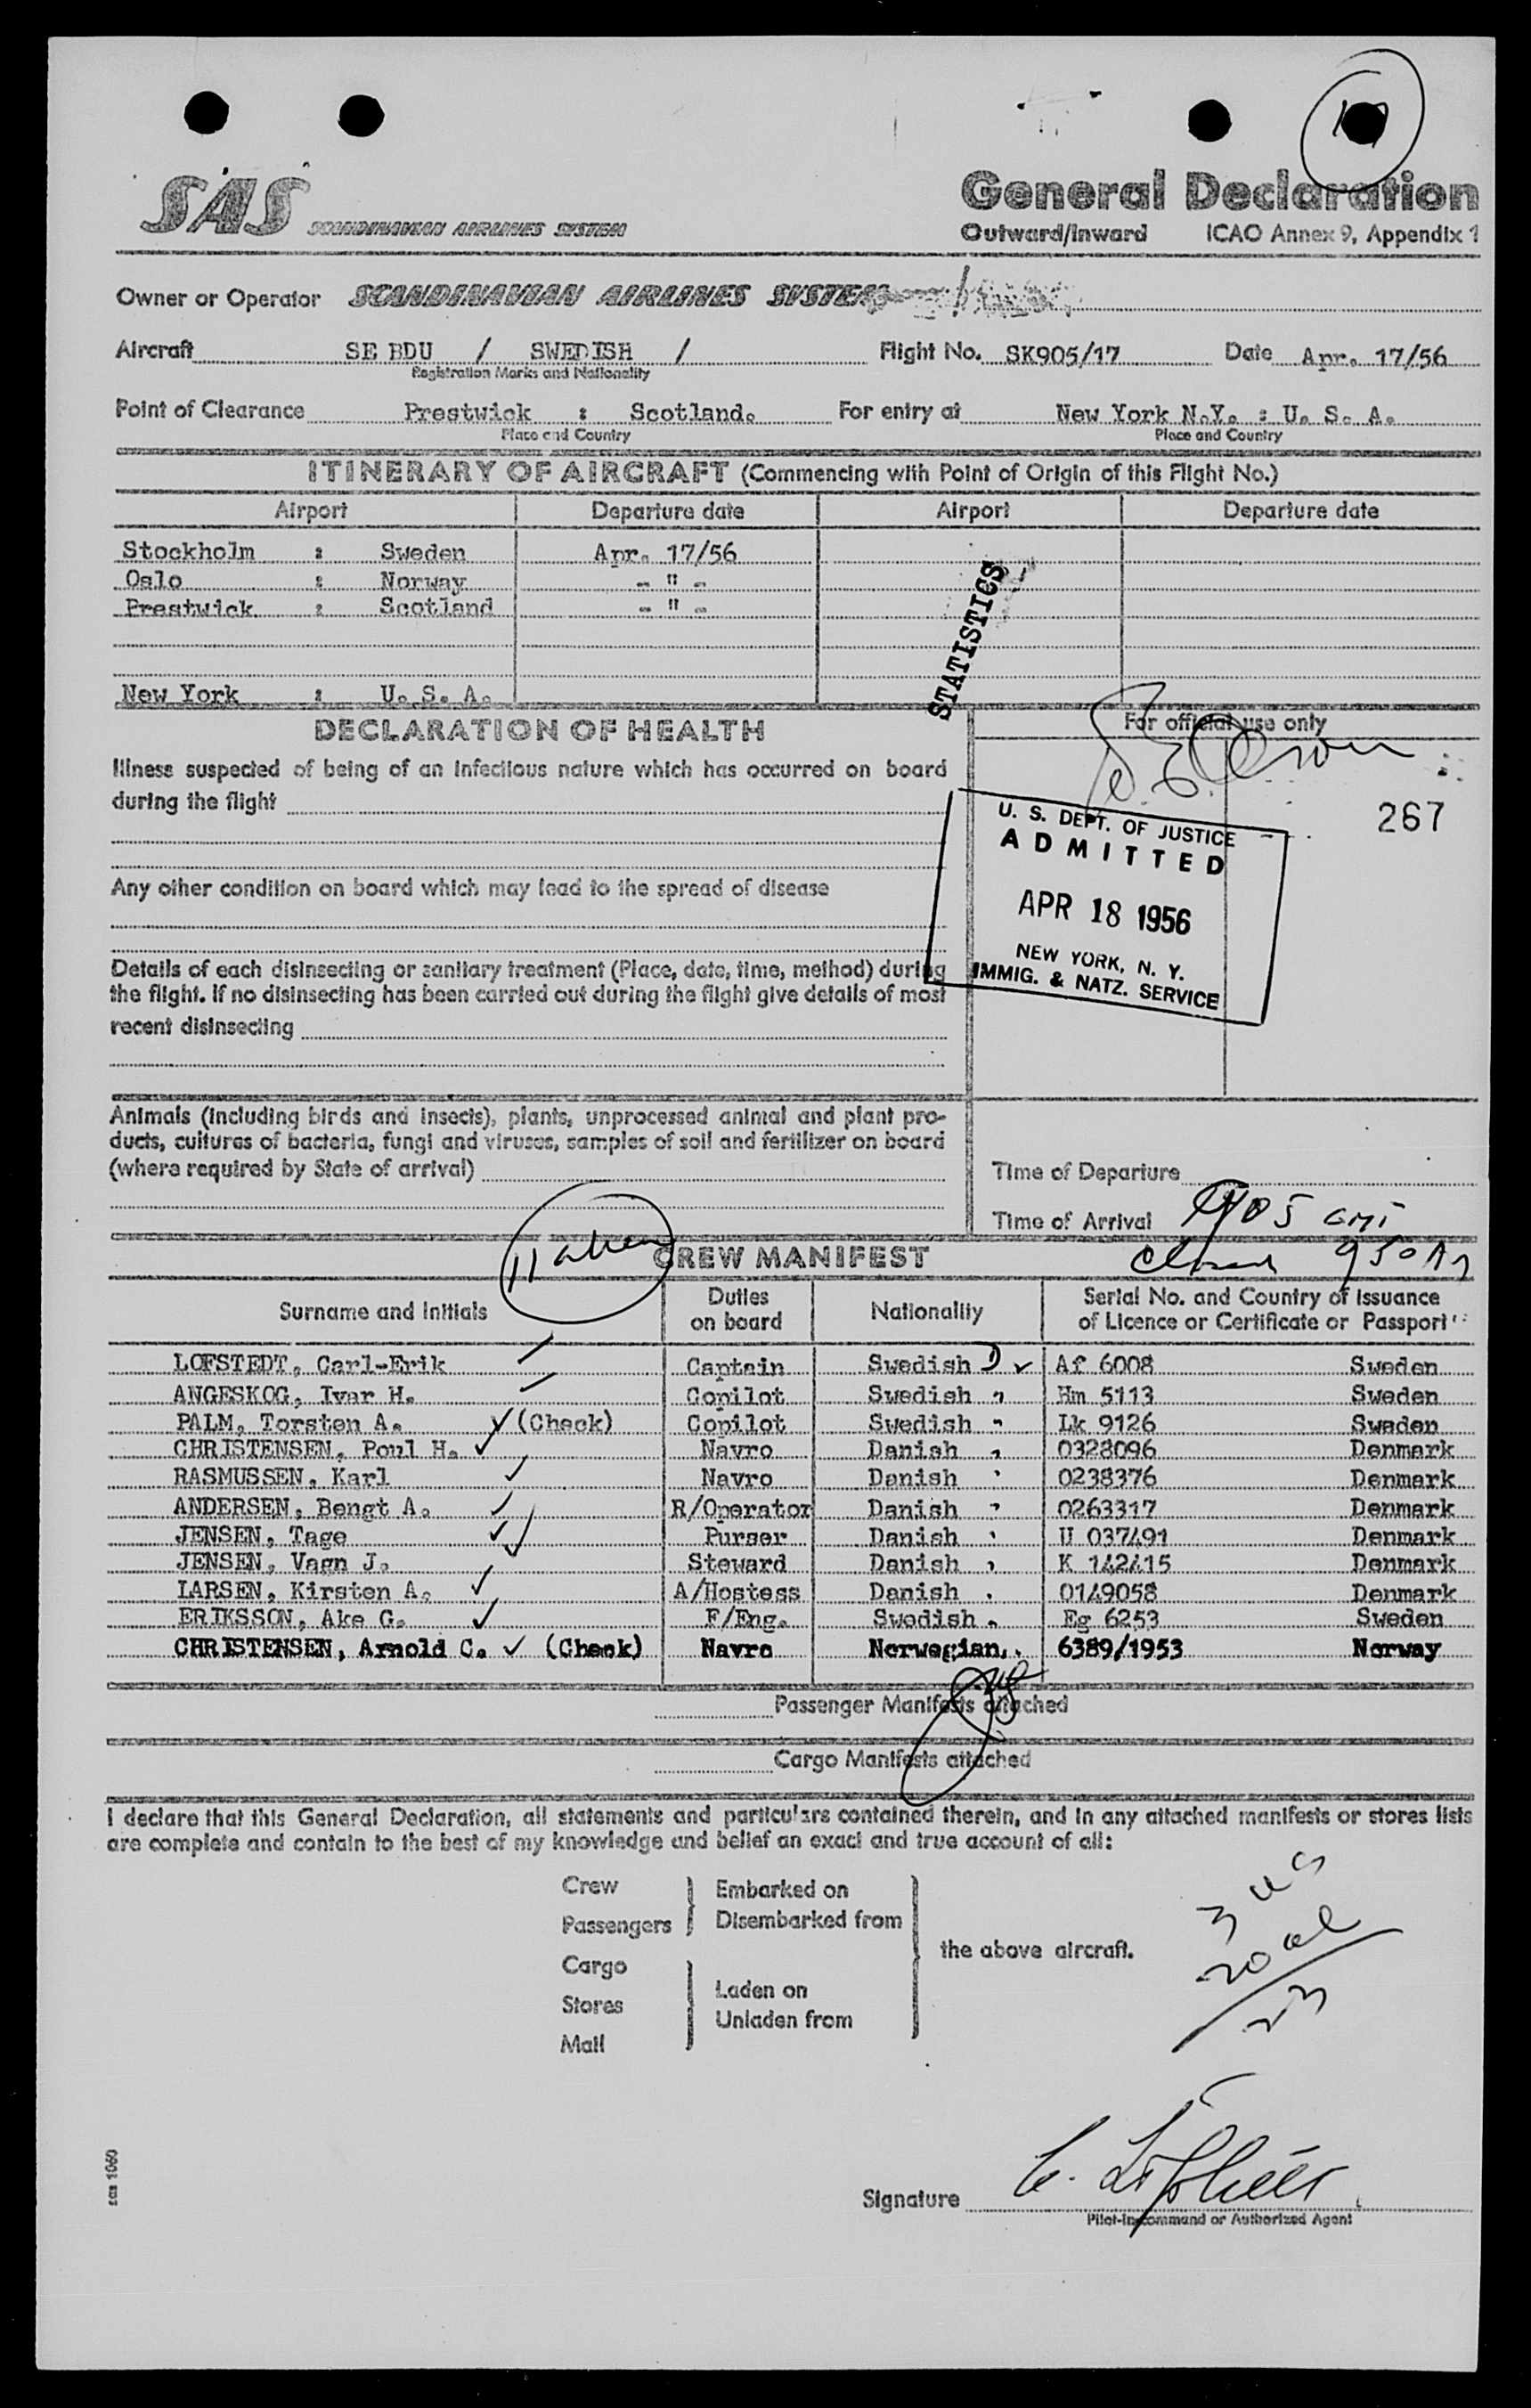 SAS SCANDINAVIAN AIRLINES SYSTEM
General Declaration
Outward/Inward ICAO Annex 9, Appendix 1
Owner or Operator SCANDINAVIAN AIRLINES SYSTEM
Aircraft SE BDU / SWEDISH / Flight No. SK905/17 Date Apr. 17/56
Registration Marks and Nationality
Point of Clearance Prestwick : Scotland. For entry at New York N.Y. : U. S. A.
Place and Country Place and Country
ITINERARY OF AIRCRAFT (Commencing with Point of Origin of this Flight No.)
Airport Departure date Airport Departure date
Stockholm : Sweden Apr. 17/56
Oslo : Norway - " -
Prestwick : Scotland - " -
New York : U. S. A.
STATISTICS
DECLARATION OF HEALTH
For official use only
Illness suspected of being of an infectious nature which has occurred on board
during the flight
267
U. S. DEPT. OF JUSTICE
ADMITTED
APR 18 1956
NEW YORK, N. Y.
IMMIG. & NATZ. SERVICE
Any other condition on board which may lead to the spread of disease
Details of each disinsecting or sanitary treatment (Place, date, time, method) during
the flight. If no disinsecting has been carried out during the flight give details of most
recent disinsecting
Animals (including birds and insects), plants, unprocessed animal and plant pro-
ducts, cultures of bacteria, fungi and viruses, samples of soil and fertilizer on board
(where required by State of arrival)
Time of Departure
Time of Arrival 905 GMT
950 AM
CREW MANIFEST
Surname and Initials Duties on board Nationality Serial No. and Country of Issuance of Licence or Certificate or Passport
LOFSTEDT, Carl-Erik Captain Swedish D ✓ Af 6008 Sweden
ANGESKOG, Ivar H. Copilot Swedish " Hm 5113 Sweden
PALM, Torsten A. ✓ (Check) Copilot Swedish " Lk 9126 Sweden
CHRISTENSEN, Poul H. ✓ Navro Danish " 0328096 Denmark
RASMUSSEN, Karl ✓ Navro Danish " 0238376 Denmark
ANDERSEN, Bengt A. ✓ R/Operator Danish " 0263317 Denmark
JENSEN, Tage ✓ Purser Danish " U 037491 Denmark
JENSEN, Vagn J. ✓ Steward Danish " K 142415 Denmark
LARSEN, Kirsten A. ✓ A/Hostess Danish " 0149058 Denmark
ERIKSSON, Ake G. ✓ F/Eng. Swedish " Eg 6253 Sweden
CHRISTENSEN, Arnold C. ✓ (Check) Navro Norwegian 6389/1953 Norway
Passenger Manifests attached
Cargo Manifests attached
I declare that this General Declaration, all statements and particulars contained therein, and in any attached manifests or stores lists
are complete and contain to the best of my knowledge and belief an exact and true account of all:
Crew Embarked on
Passengers Disembarked from
the above aircraft.
Cargo
Laden on
Stores
Unladen from
Mail
3 us
20 al
23
sas 1060
Signature
Pilot-in-command or Authorized Agent